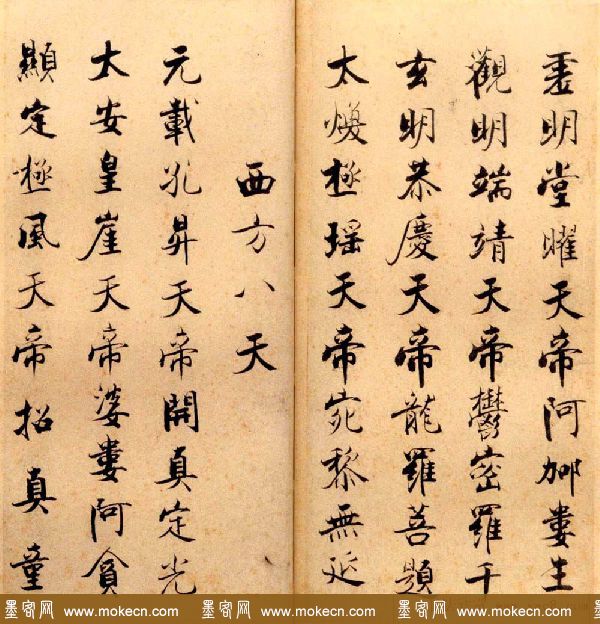 虛明堂曜天帝阿那婁生
觀明端靖天帝鬱密羅千
玄明恭慶天帝龍羅菩題
太煥極瑤天帝宛黎無延
西方八天
元載孔昇天帝開真定光
太安皇崖天帝婆婁阿貪
顯定極風天帝招真童
墨客网 www.mokecn.com 墨客网 www.mokecn.com 墨客网 www.mokecn.com